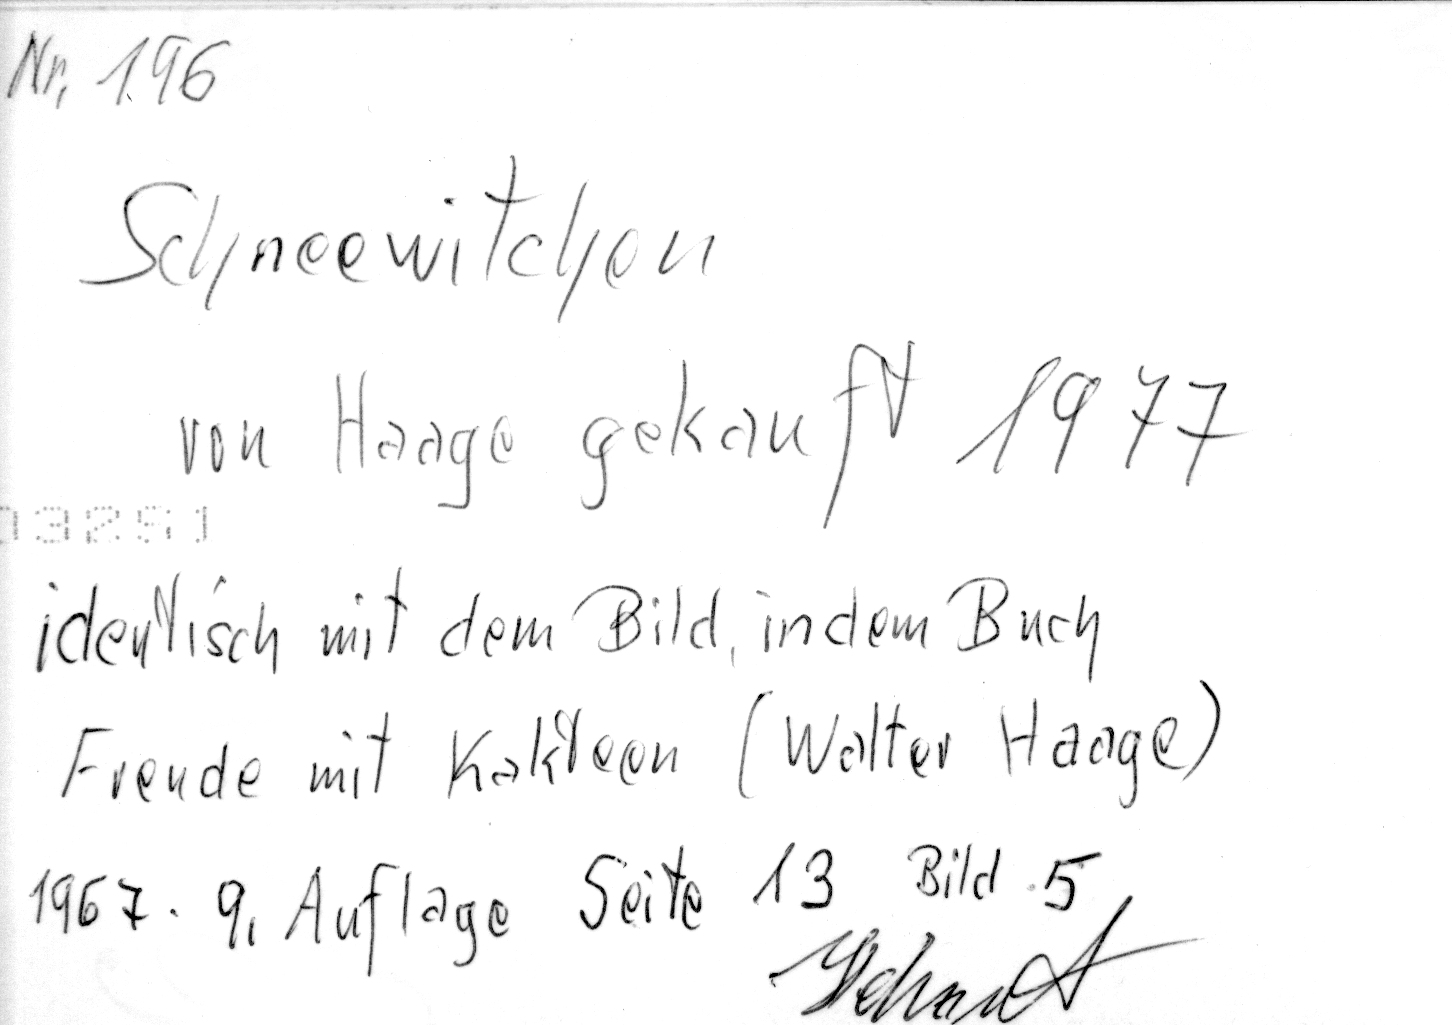 Nr. 196
Schneewitchen
von Haage gekauft 1977
identisch mit dem Bild, in dem Buch
Freude mit Kakteen (Walter Haage)
1967. 9. Auflage Seite 13 Bild 5